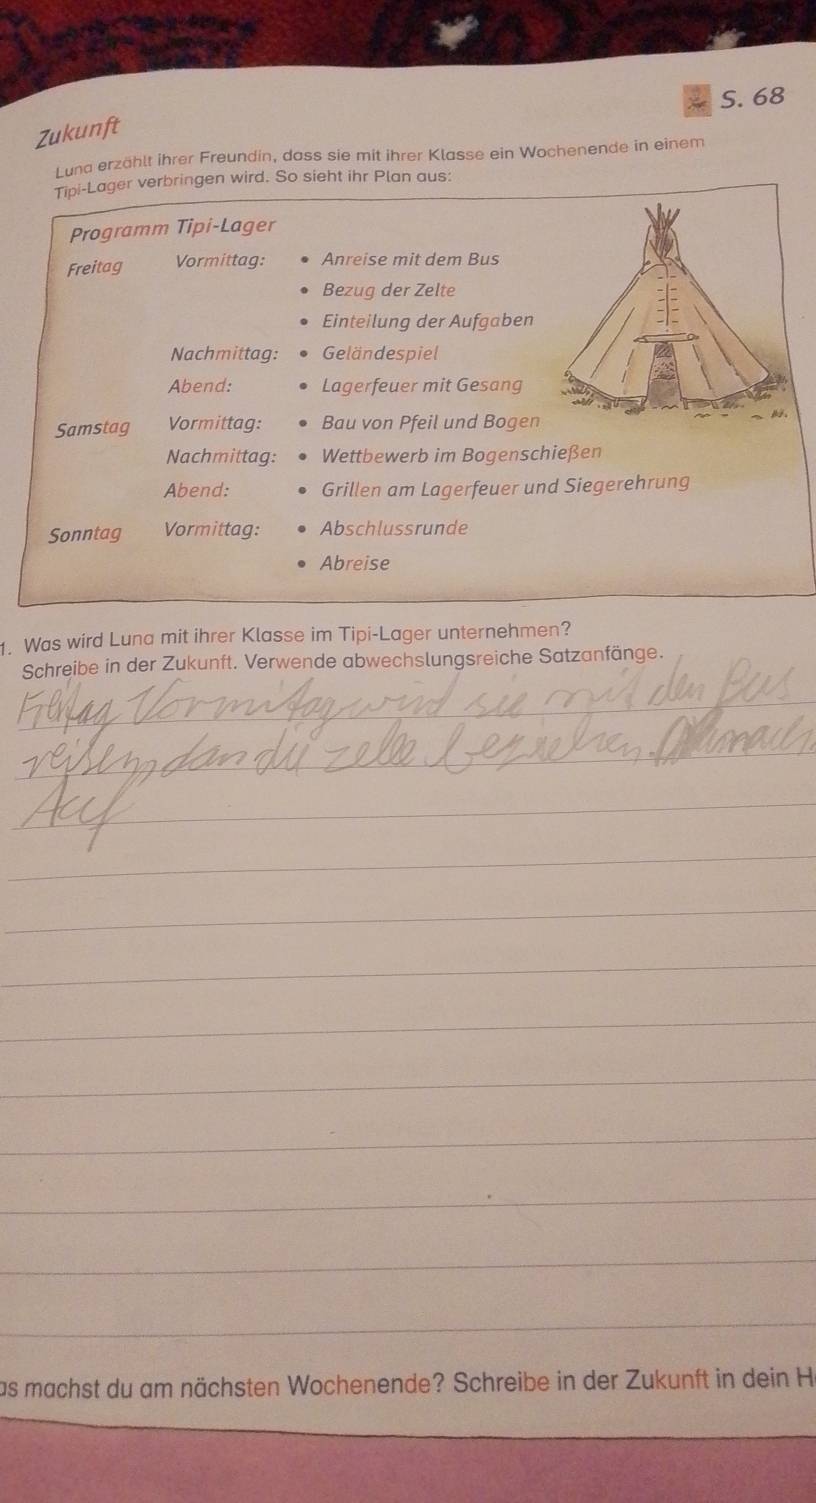 S. 68
Zukunft
Luna erzählt ihrer Freundin, dass sie mit ihrer Klasse ein Wochenende in einem
Tipi-Lager verbringen wird. So sieht ihr Plan aus:
Programm Tipi-Lager
Freitag Vormittag: • Anreise mit dem Bus
• Bezug der Zelte
• Einteilung der Aufgaben
Nachmittag: • Geländespiel
Abend: • Lagerfeuer mit Gesang
Samstag Vormittag: • Bau von Pfeil und Bogen
Nachmittag: • Wettbewerb im Bogenschießen
Abend: • Grillen am Lagerfeuer und Siegerehrung
Sonntag Vormittag: • Abschlussrunde
• Abreise
1. Was wird Luna mit ihrer Klasse im Tipi-Lager unternehmen?
Schreibe in der Zukunft. Verwende abwechslungsreiche Satzanfänge.
Freitag Vormitag wird sie mit den Bus
reisen, dan die zelte beziehen.
Auf
as machst du am nächsten Wochenende? Schreibe in der Zukunft in dein H